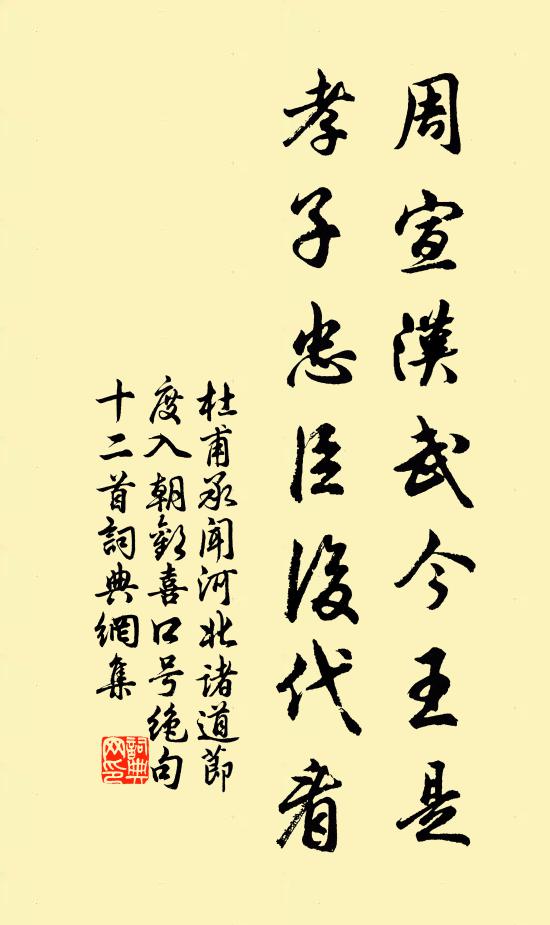 周宣漢武今王是
孝子忠臣後代看
杜甫承聞河北諸道節
度入朝歡喜口号絶句
十二首詞典網集
詞典
网印